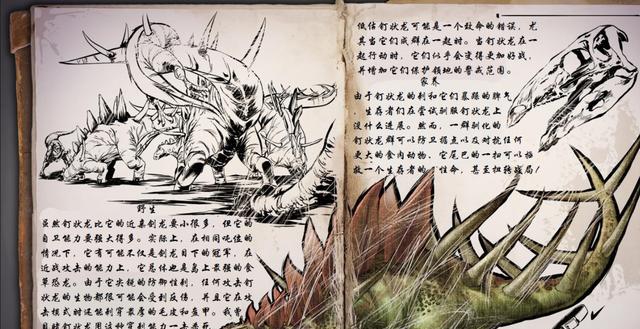 野生
虽然钉状龙比它的近亲剑龙要小很多，但它的
自卫能力要强大得多。实际上，在相同吨位的
情况下，它有可能不仅是剑龙目下的冠军，在
近战攻击的能力上，它总体也是岛上最强的食
草恐龙。由于它尖锐的防御性刺，任何攻击钉
状龙的生物都很可能会受到反伤，并且它在攻
击模式时还能刺穿敌的毛皮和盔甲。
目睹钉状龙用这种穿刺能力一击
低估钉状龙可能是一个致命的错误，尤
其当它们成群在一起时。当钉状龙在一
起行动时，它们似乎会变得更加好战，
并增加它们保护领地的警戒范围。
家养
由于钉状龙的刺和它们暴躁的脾气
，生存者们在尝试驯服钉状龙上
没什么进展。然而，一群驯化的
钉状龙群可以防卫据点以及对抗任何
更大的食肉动物，它尾巴的一扣可以拯
救一个生存者的性命，甚至扭转战局！